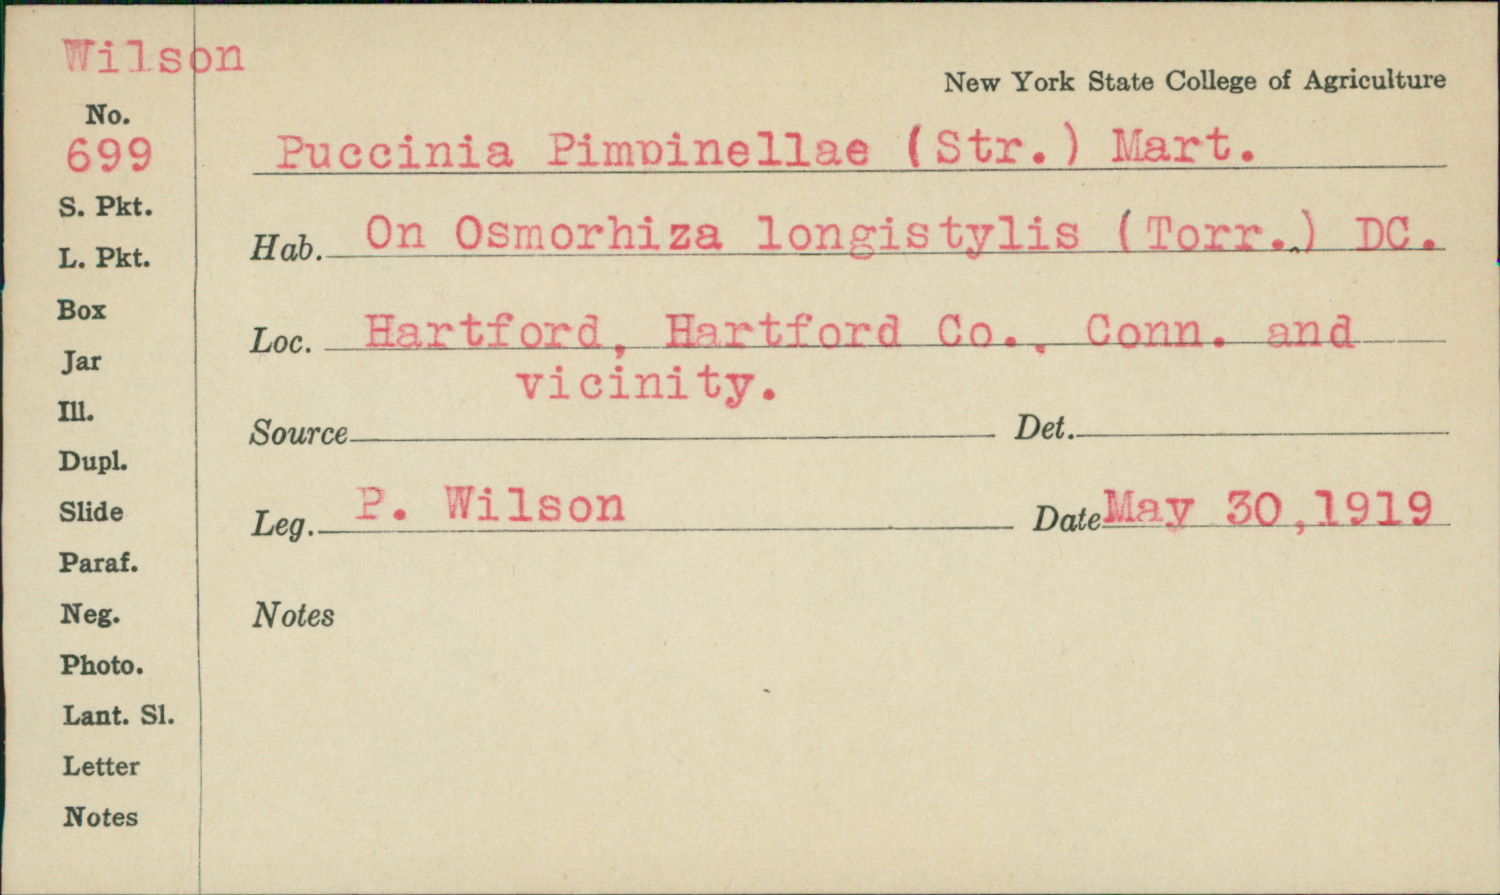 Wilson
New York State College of Agriculture
No.
699
Puccinia Pimpinellae (Str.) Mart.
S. Pkt.
L. Pkt.
Box
Jar
Ill.
Dupl.
Slide
Paraf.
Neg.
Photo.
Lant. Sl.
Letter
Notes
Hab. On Osmorhiza longistylis (Torr.) DC.
Loc. Hartford, Hartford Co., Conn. and
vicinity.
Source Det.
Leg. P. Wilson Date May 30,1919
Notes